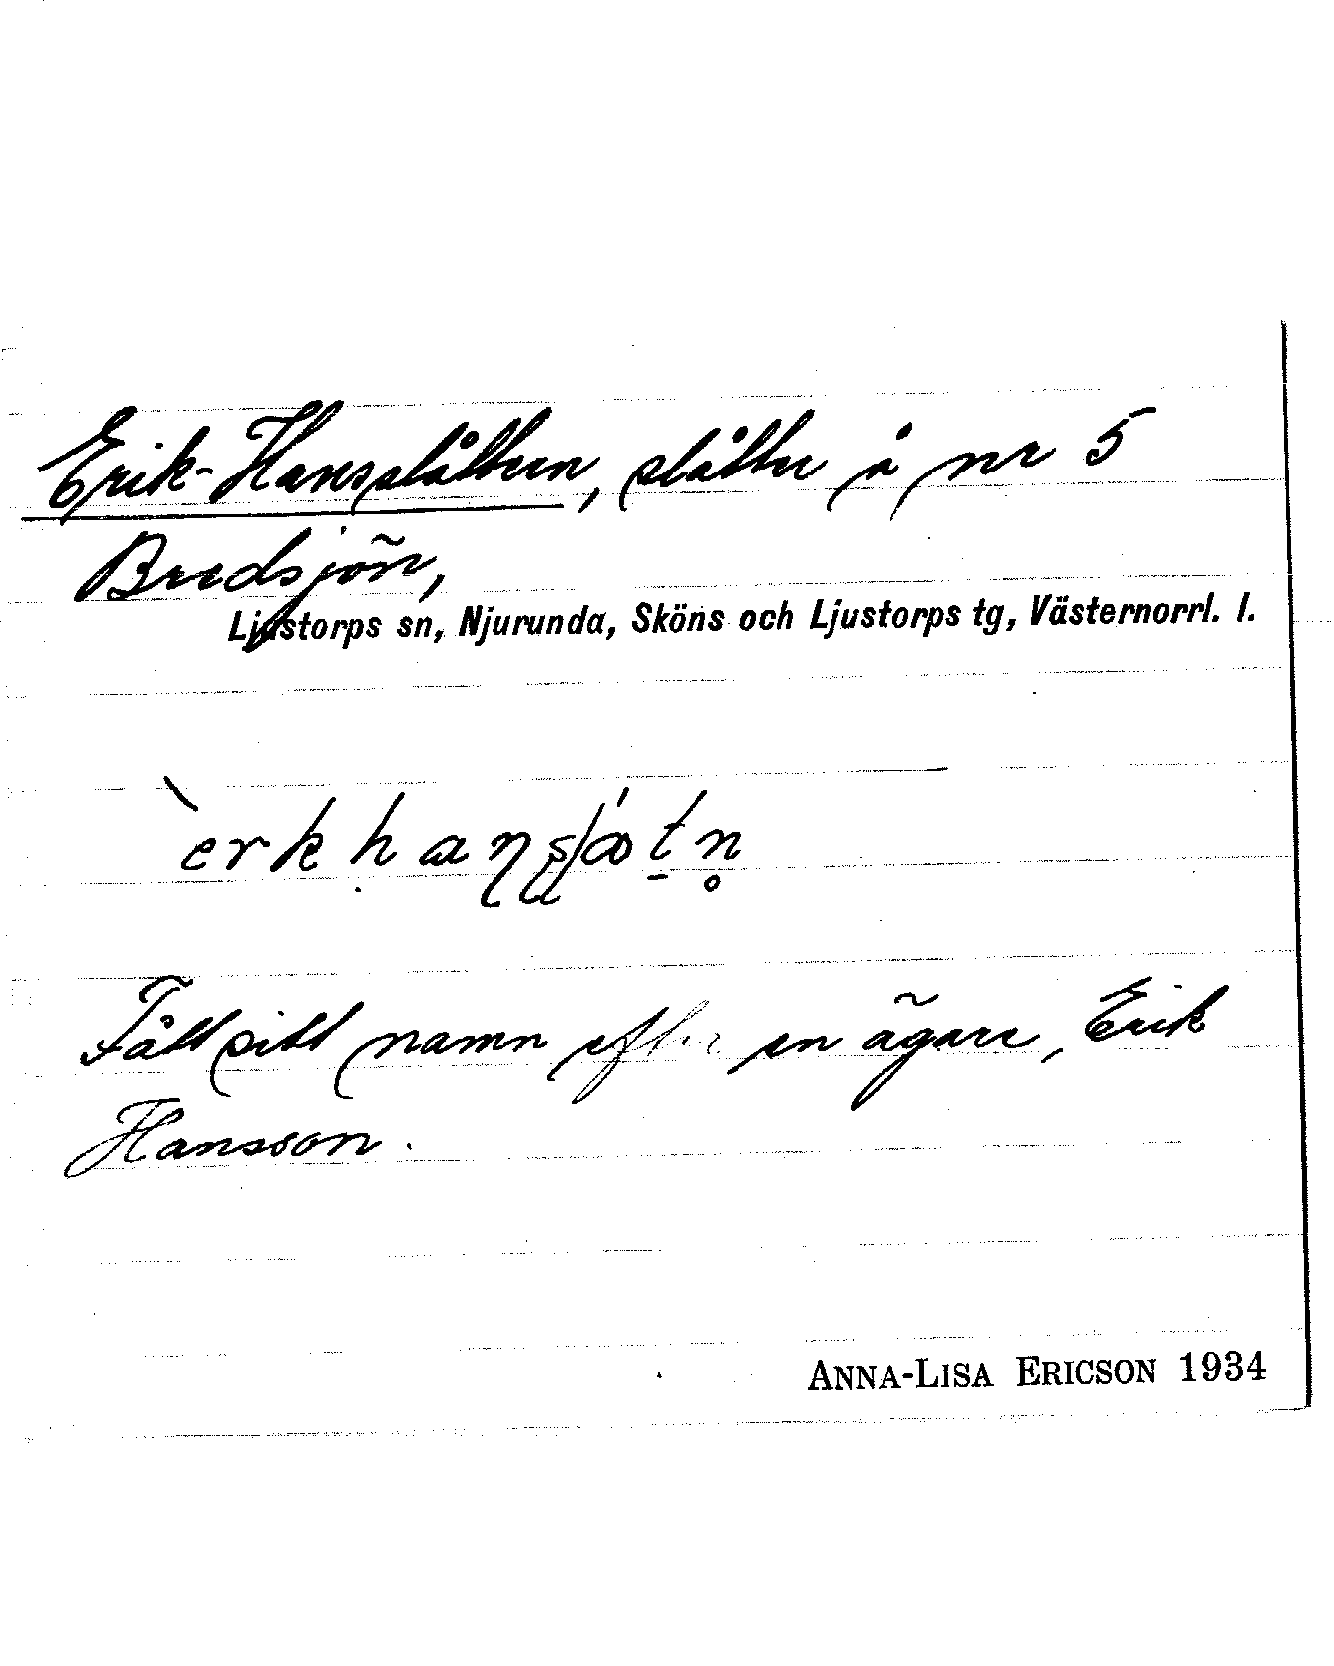 Erik-Hansslåtten, slåtter å nr 5
Bredsjön,
Ljustorps sn, Njurunda, Sköns och Ljustorps tg, Västernorrl. l.
Fått sitt namn efter en ägare, Erik
Hansson.
ANNA-LISA ERICSON 1934